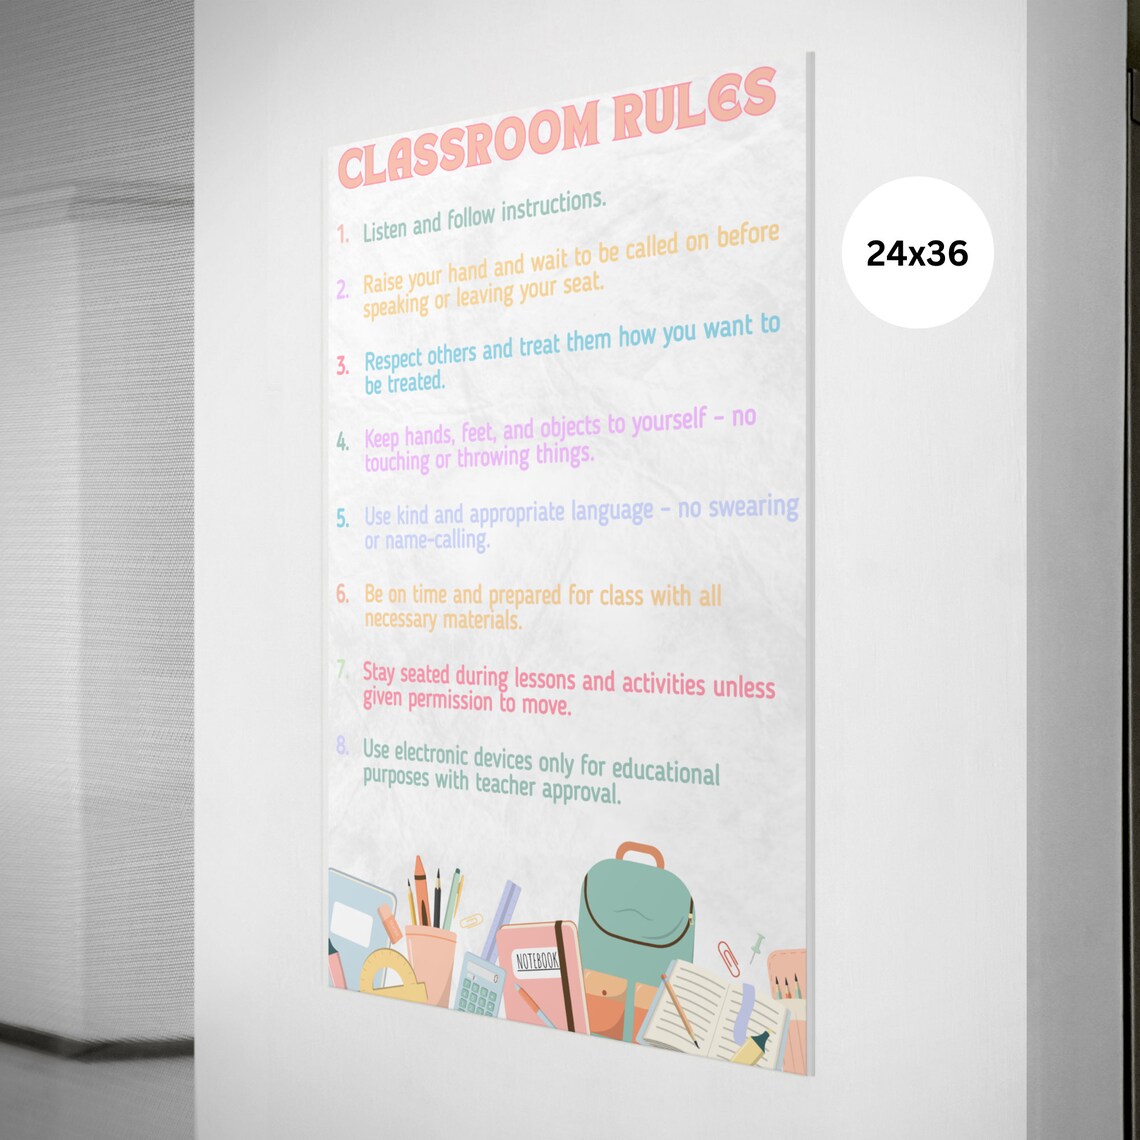 CLASSROOM RULES
1. Listen and follow instructions.
2. Raise your hand and wait to be called on before
speaking or leaving your seat.
3. Respect others and treat them how you want to
be treated.
4. Keep hands, feet, and objects to yourself – no
touching or throwing things.
5. Use kind and appropriate language – no swearing
or name-calling.
6. Be on time and prepared for class with all
necessary materials.
7. Stay seated during lessons and activities unless
given permission to move.
8. Use electronic devices only for educational
purposes with teacher approval.
NOTEBOOK
0
24x36